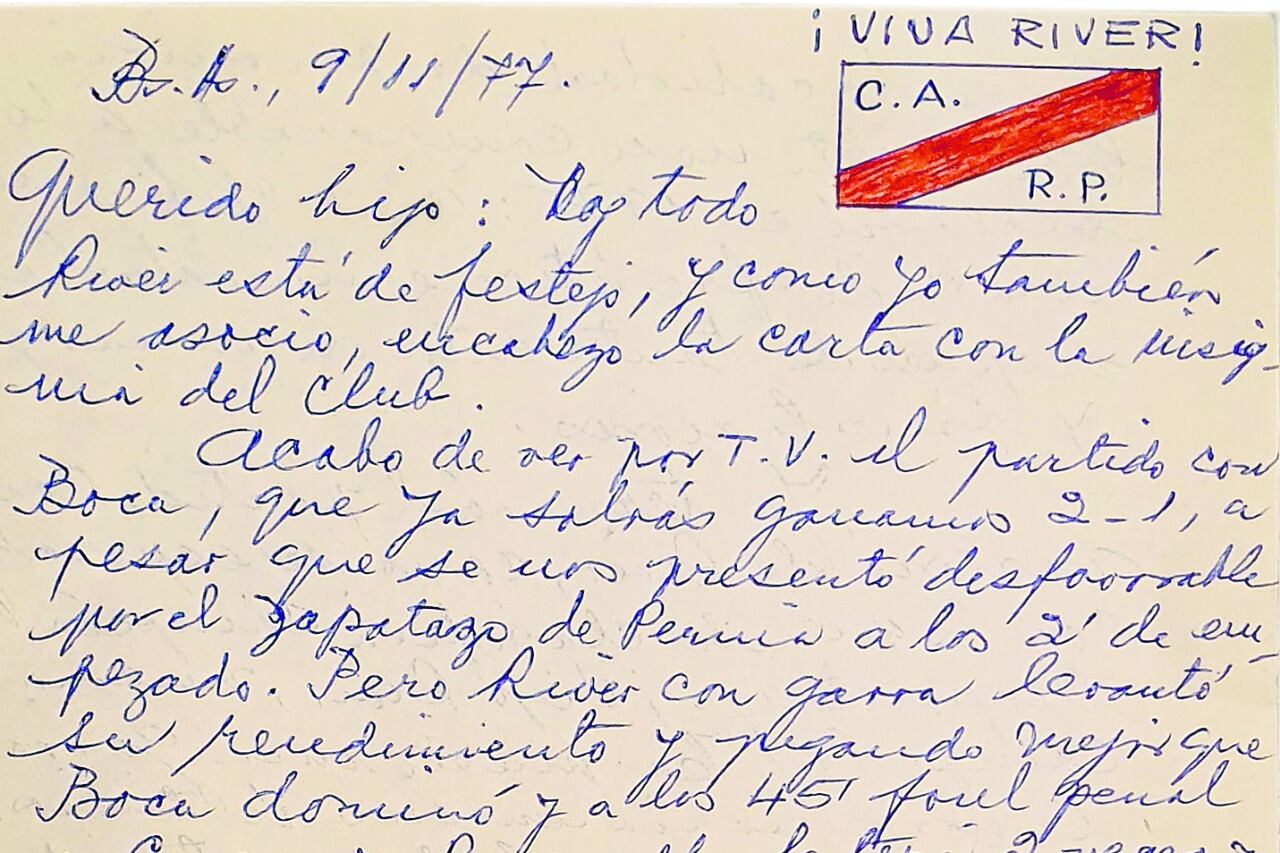 ¡VIVA RIVER!
Bs. As., 9/11/77.
C.A.
R.P.
Querido hijo: Hoy todo
River está de festejo, y como yo también
me asocio, encabezo la carta con la insig-
nia del club.
Acabo de ver por T.V. el partido con
Boca, que ya sabrás ganamos 2-1, a
pesar que se nos presentó desfavorable
por el zapatazo de Pernía a los 2' de em-
pezado. Pero River con garra levantó
su rendimiento y jugando mejor que
Boca dominó y a los 45' foul penal